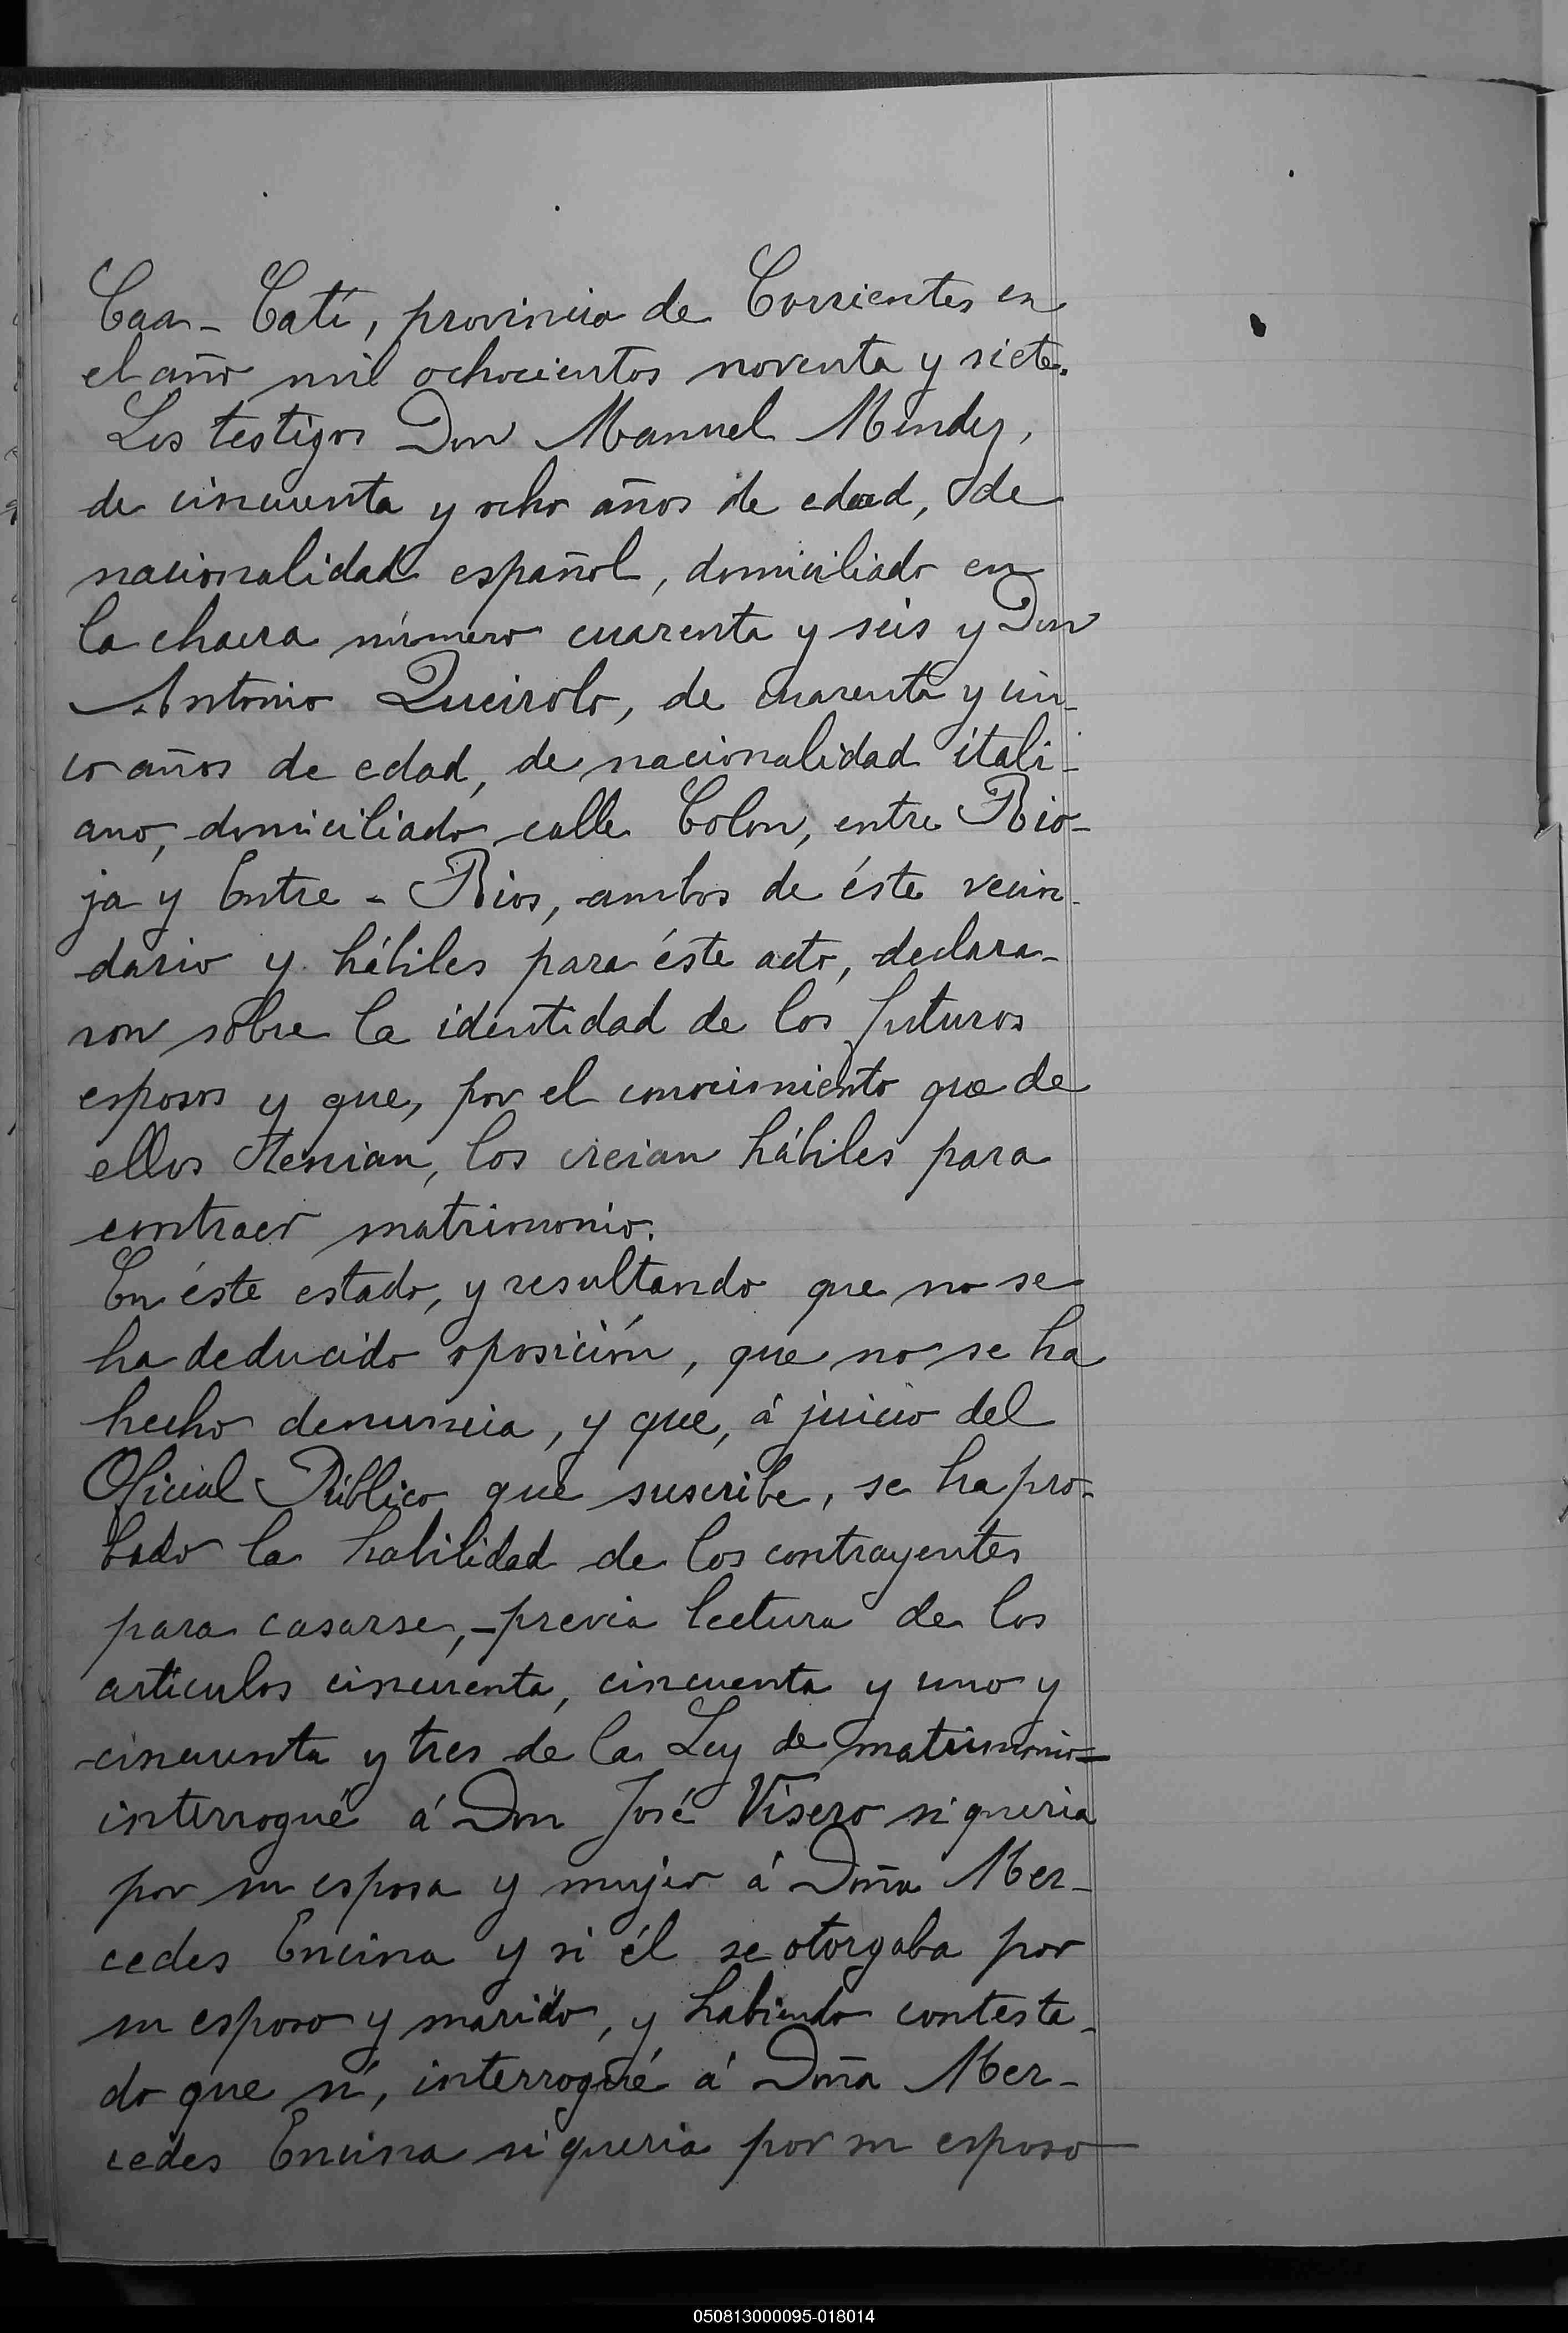 Caa-Catí, provincia de Corrientes en
el año mil ochocientos noventa y siete.
Los testigos Don Manuel Mendez,
de cincuenta y ocho años de edad, de
nacionalidad español, domiciliado en
la chacra número cuarenta y seis y Don
Antonio Queirolo, de cuarenta y cin-
co años de edad, de nacionalidad itali-
ano, domiciliado calle Colon, entre Rio-
ja y Entre-Rios, ambos de éste vecin-
dario y hábiles para éste acto, declara-
ron sobre la identidad de los futuros
esposos y que, por el conocimiento que de
ellos tenian, los creian hábiles para
contraer matrimonio.
En éste estado, y resultando que no se
ha deducido oposición, que no se ha
hecho denuncia, y que, á juicio del
Oficial Público que suscribe, se ha pro-
bado la habilidad de los contrayentes
para casarse,-previa lectura de los
articulos cincuenta, cincuenta y uno y
cincuenta y tres de la Ley de matrimonio=
interrogué á Don José Visero si queria
por su esposa y mujer á Doña Mer-
cedes Encina y si él se otorgaba por
su esposo y marido, y habiendo contesta-
do que sí, interrogué á Doña Mer-
cedes Encina si queria por su esposo
050813000095-018014